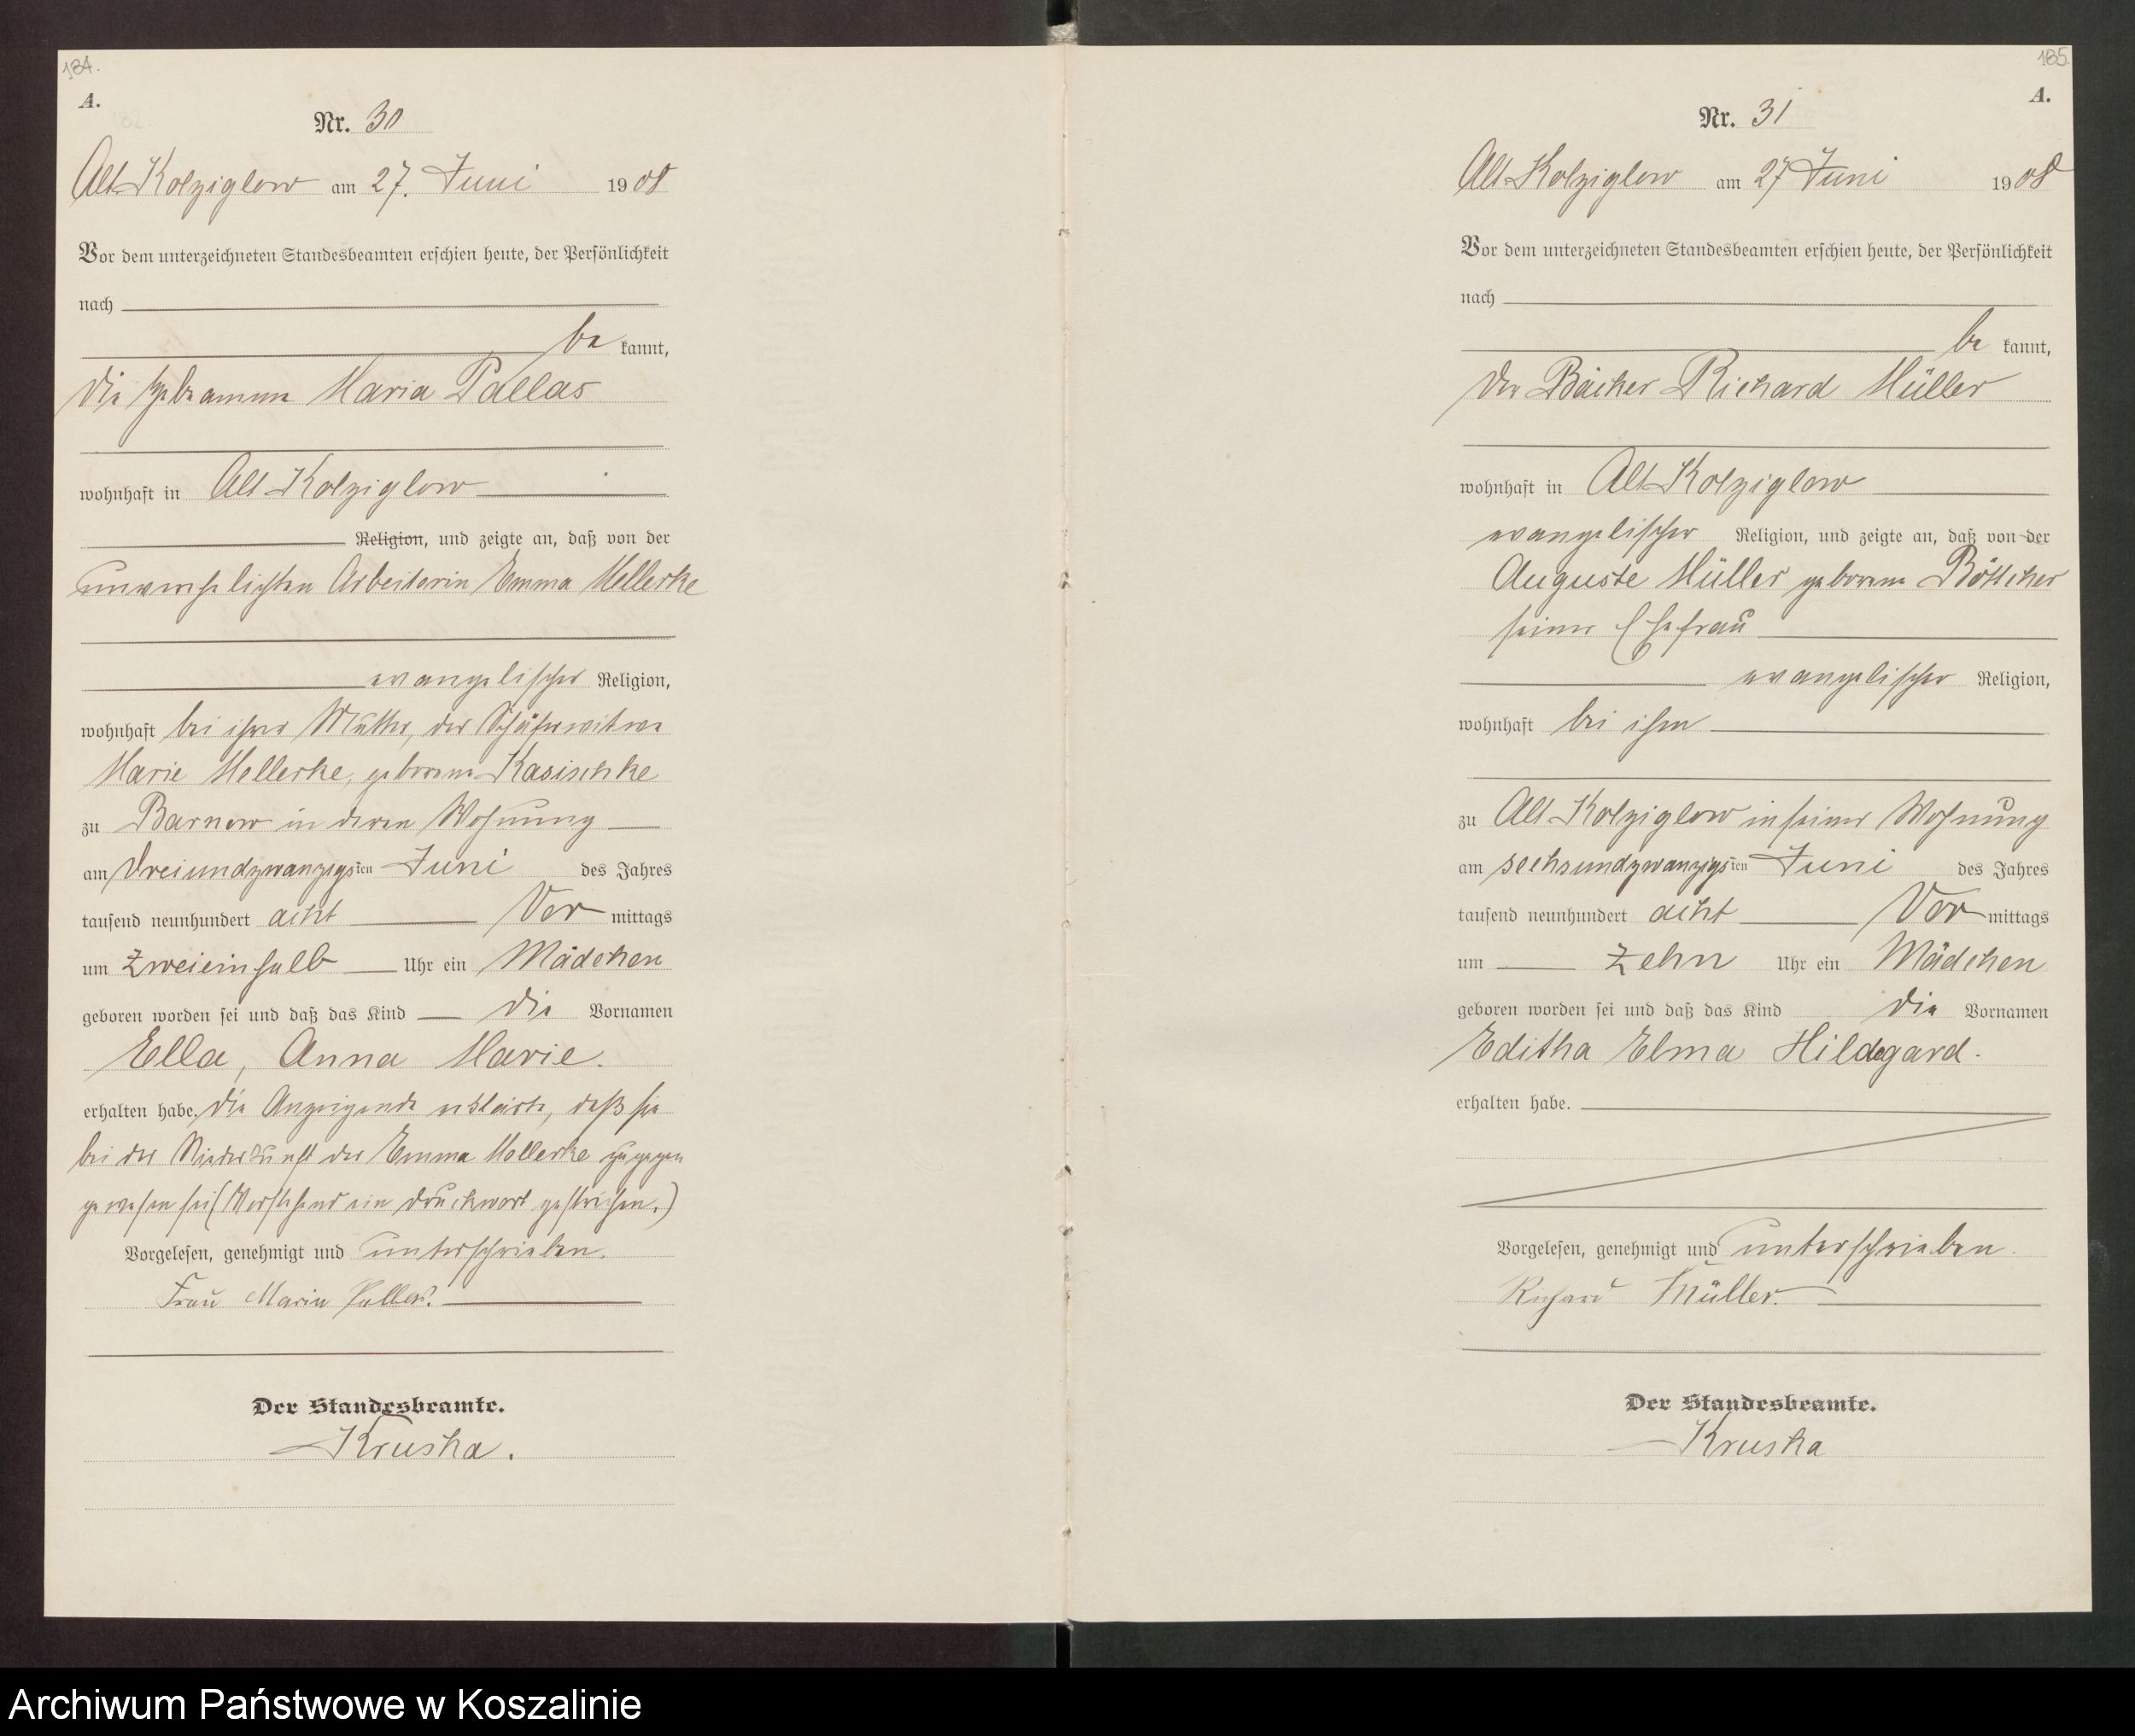 184.
A.
Nr. 30
Alt Kolziglow am 27. Juni 1908
Vor dem unterzeichneten Standesbeamten erschien heute, der Persönlichkeit
nach
be kannt,
die Hebamme Maria Pallas
wohnhaft in Alt Kolziglow
Religion, und zeigte an, daß von der
unverehelichten Arbeiterin Emma Mellerke
evangelischer Religion,
wohnhaft bei ihrer Mutter, der Schäferwitwe
Marie Mellerke, geborene Kasischke
zu Barnow in deren Wohnung
am dreiundzwanzigsten Juni des Jahres
tausend neunhundert acht Vor mittags
um zweieinhalb Uhr ein Mädchen
geboren worden sei und daß das Kind die Vornamen
Ella, Anna Marie.
erhalten habe. Die Anzeigende erklärte, daß sie
bei der Niederkunft der Emma Mellerke zugegen
gewesen sei (Vorstehend ein Druckwort gestrichen.)
Vorgelesen, genehmigt und unterschrieben.
Frau Maria Pallas.
Der Standesbeamte.
Kruska.
185.
A.
Nr. 31
Alt Kolziglow am 27 Juni 1908
Vor dem unterzeichneten Standesbeamten erschien heute, der Persönlichkeit
nach
be kannt,
der Bäcker Richard Müller
wohnhaft in Alt Kolziglow
evangelischer Religion, und zeigte an, daß von der
Auguste Müller geborene Böttcher
seiner Ehefrau
evangelischer Religion,
wohnhaft bei ihm
zu Alt Kolziglow in seiner Wohnung
am sechsundzwanzigsten Juni des Jahres
tausend neunhundert acht Vor mittags
um zehn Uhr ein Mädchen
geboren worden sei und daß das Kind die Vornamen
Editha Elma Hildegard.
erhalten habe.
Vorgelesen, genehmigt und unterschrieben.
Richard Müller.
Der Standesbeamte.
Kruska
Archiwum Państwowe w Koszalinie